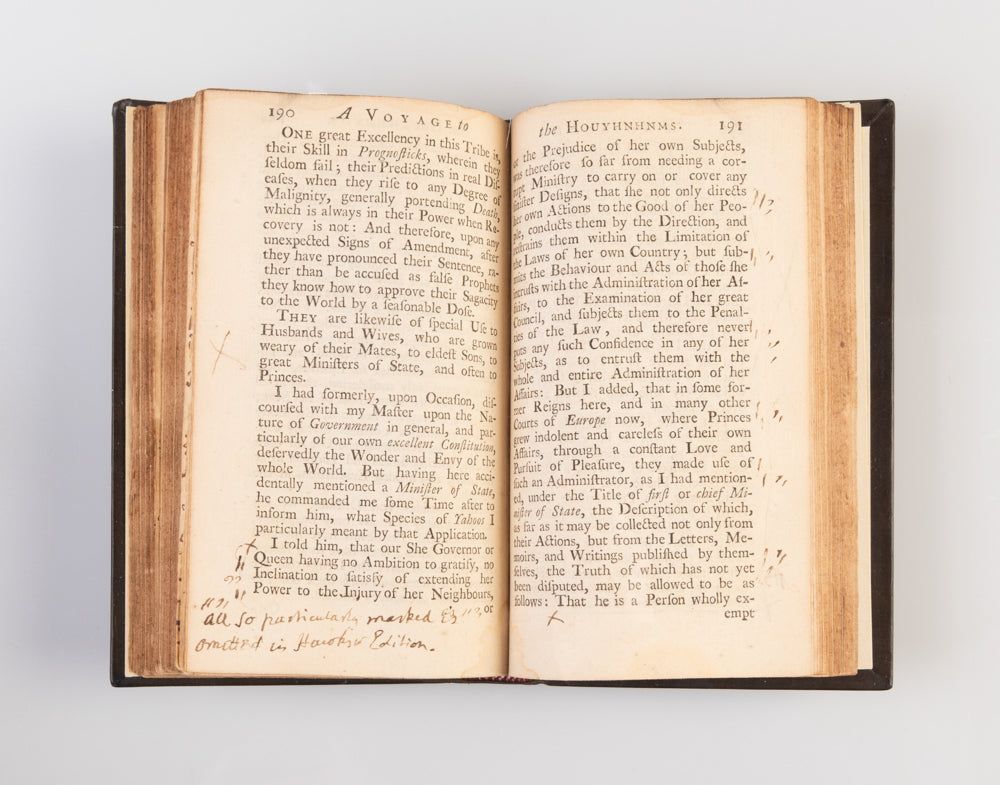 190 A VOYAGE to
ONE great Excellency in this Tribe is,
their Skill in Prognoſticks, wherein they
ſeldom fail; their Predictions in real Diſ-
eaſes, when they riſe to any Degree of
Malignity, generally portending Death,
which is always in their Power when Re-
covery is not: And therefore, upon any
unexpected Signs of Amendment, after
they have pronounced their Sentence, ra-
ther than be accuſed as falſe Prophets
they know how to approve their Sagacity
to the World by a ſeaſonable Doſe.
THEY are likewiſe of ſpecial Uſe to
Husbands and Wives, who are grown
weary of their Mates, to eldeſt Sons, to
great Miniſters of State, and often to
Princes.
I had formerly, upon Occaſion, diſ-
courſed with my Maſter upon the Na-
ture of Government in general, and par-
ticularly of our own excellent Conſtitution,
deſervedly the Wonder and Envy of the
whole World. But having here acci-
dentally mentioned a Miniſter of State,
he commanded me ſome Time after to
inform him, what Species of Yahoos I
particularly meant by that Application.
I told him, that our She Governor or
Queen having no Ambition to gratify, no
Inclination to ſatisfy of extending her
Power to the Injury of her Neighbours,
or
all so particularly marked
omitted in Edition.
the HOUYHNHNMS. 191
the Prejudice of her own Subjects,
was therefore ſo far from needing a cor-
rupt Miniſtry to carry on or cover any
ſiniſter Deſigns, that ſhe not only directs
her own Actions to the Good of her Peo-
ple, conducts them by the Direction, and
reſtrains them within the Limitation of
the Laws of her own Country; but ſub-
mits the Behaviour and Acts of thoſe ſhe
intruſts with the Adminiſtration of her Af-
fairs, to the Examination of her great
Council, and ſubjects them to the Penal-
ties of the Law, and therefore never
puts any ſuch Confidence in any of her
Subjects, as to entruſt them with the
whole and entire Adminiſtration of her
Affairs: But I added, that in ſome for-
mer Reigns here, and in many other
Courts of Europe now, where Princes
grew indolent and careleſs of their own
Affairs, through a conſtant Love and
Purſuit of Pleaſure, they made uſe of
ſuch an Adminiſtrator, as I had mention-
ed, under the Title of firſt or chief Mi-
niſter of State, the Deſcription of which,
as far as it may be collected not only from
their Actions, but from the Letters, Me-
moirs, and Writings publiſhed by them-
ſelves, the Truth of which has not yet
been diſputed, may be allowed to be as
follows: That he is a Perſon wholly ex-
empt